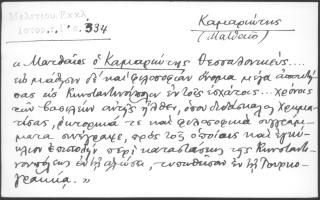 Μελετίου Εκκλ.
Ιστορ. 334
Καμαριώτης
(Ματθαῖος)
« Ματθαῖος ὁ Καμαριώτης Θεσσαλονικεὺς...
εἰς μάθησιν δὲ καὶ φιλοσοφίαν ὄνομα μέγα
σας εἰς Κωνσταντινούπολιν ἐν τοῖς ἐσχάτοις... χρόνοις
τῶν βασιλέων αὐτῆς ἦλθεν, ὅπου διδάσκαλος χρημα-
τίσας, ῥητορικά τε καὶ φιλοσοφικὰ συγγράμ-
ματα συνέγραψε, πρὸς τοῖς ὁποίοις καὶ ἐγκύ-
κλιον ἐπιστολὴν περὶ καταστάσεως τῆς Κωνσταντι-
νουπόλεως ἐν τῇ ἁλώσει, τυπωθεῖσαν ἐν τῇ Τουρκο-
γραικίᾳ. »